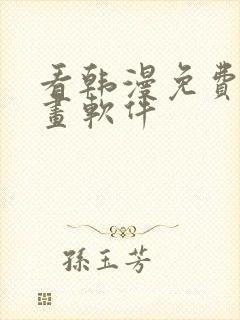 看韩漫免費
畫軟件
孫玉芳